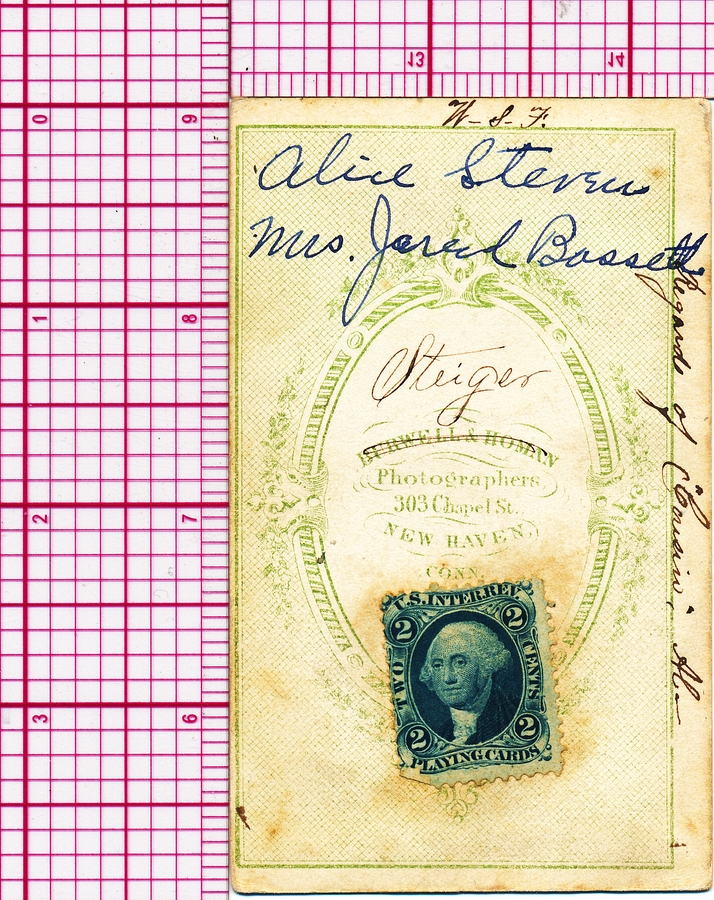 13 14
0 9
1 8
2 7
3 6
W-S-F.
Alice Stevens
Mrs. Jared Bassett
Steiger
BURWELL & HOMAN
Photographers
303 Chapel St.
NEW HAVEN,
CONN.
U.S. INTER. REV.
2 2
TWO CENTS
2 2
PLAYING CARDS
Regards of "Cousin"